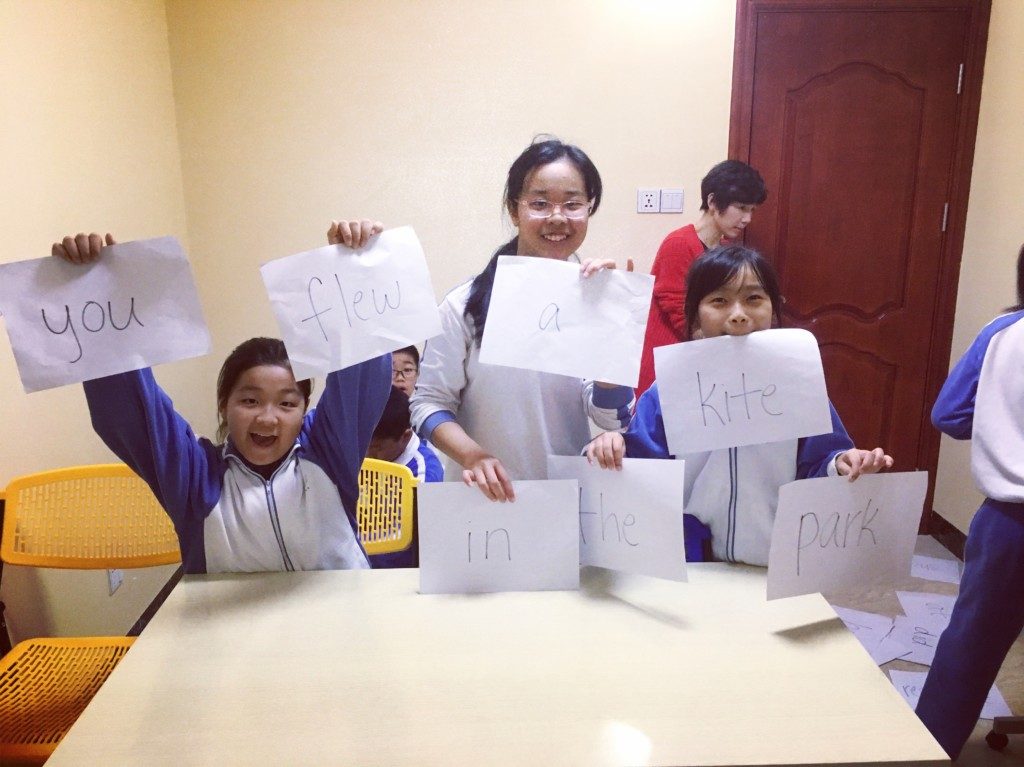 you
flew
a
kite
in
the
park